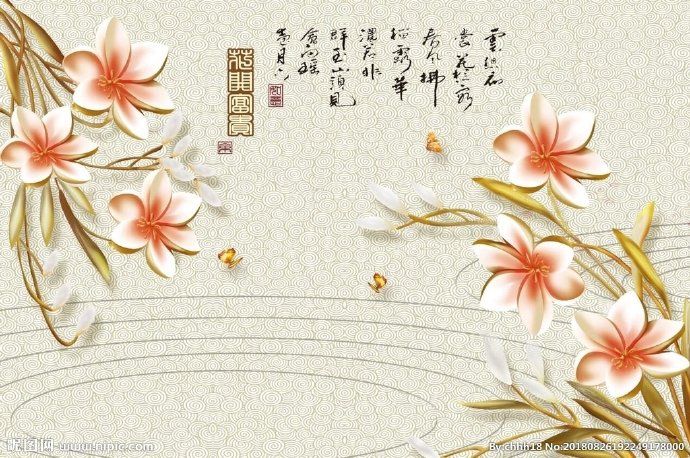 雲想衣
裳花想容
春風拂
檻露華
濃若非
群玉山頭見
會向瑤
臺月下
花開富貴
昵图网 www.nipic.com
By:chhh18 No:20180826192249178000